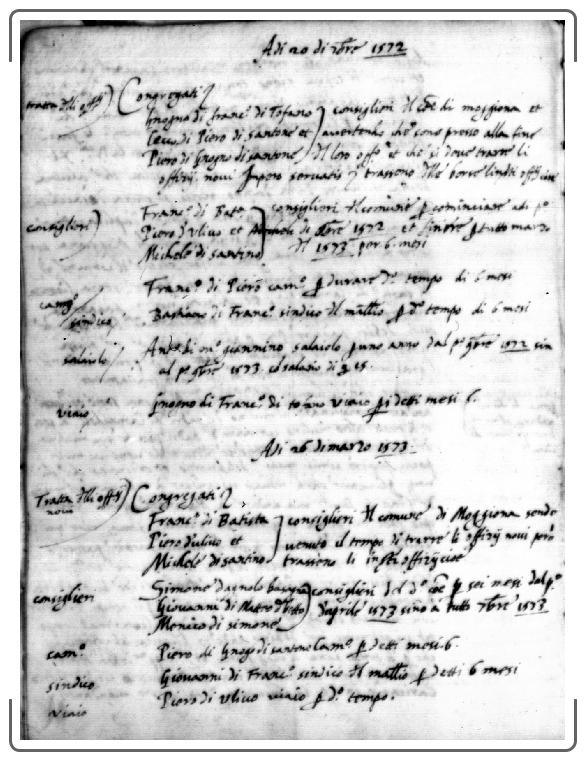 Adi 20 di 7bre 1572
tratta dlli offitij
Congregati
Gnogno di franc.o di Tofano
Ceccho di Piero di santone et
Piero di Gnogno di santone
consiglieri dl coe di moggiona et
avvertendo che sono presso alla fine
dl loro offo et che si deve trarre li
offitij novi servatis trasseno dlle borse li offitij cioe
consiglieri
Franc.o di Batta
Piero d'ulivo et
Michele di santino
consiglieri dl comune p cominciare adi p.o
di 8bre 1572 et finire p tutto marzo
dl 1573 per 6 mesi
cam.o
Franc.o di Piero cam.o p durare d.o tempo di 6 mesi
sindico
Bastiano di Franc.o sindico dl mallio p d.o tempo di 6 mesi
salaiolo
di giannino salaiolo p uno anno dal p.o 1572 sin
al p.o 1573 col salario di
viaio
Gnogno di Franc.o di tofano viaio p detti mesi 6.
Adi 26 di marzo 1573
Tratta dlli offitij
novi
Congregati
Franc.o di Batista
Piero d'ulivo et
Michele di santino
consiglieri dl comune di Moggiona sendo
venuto il tempo di trarre li offitij novi però
trasseno li offitij cioe
consiglieri
Simone d'agnolo
Giovanni di Matteo
Menico di simone
consiglieri del d.o coe p sei mesi dal p.o
d'aprile 1573 sino a tutto 7bre 1573
cam.o
Piero di Gnogno di santone Cam.o p detti mesi 6.
sindico
Giovanni di Franc.o sindico dl mallio p detti 6 mesi
viaio
Piero di Ulivo viaio p d.o tempo.